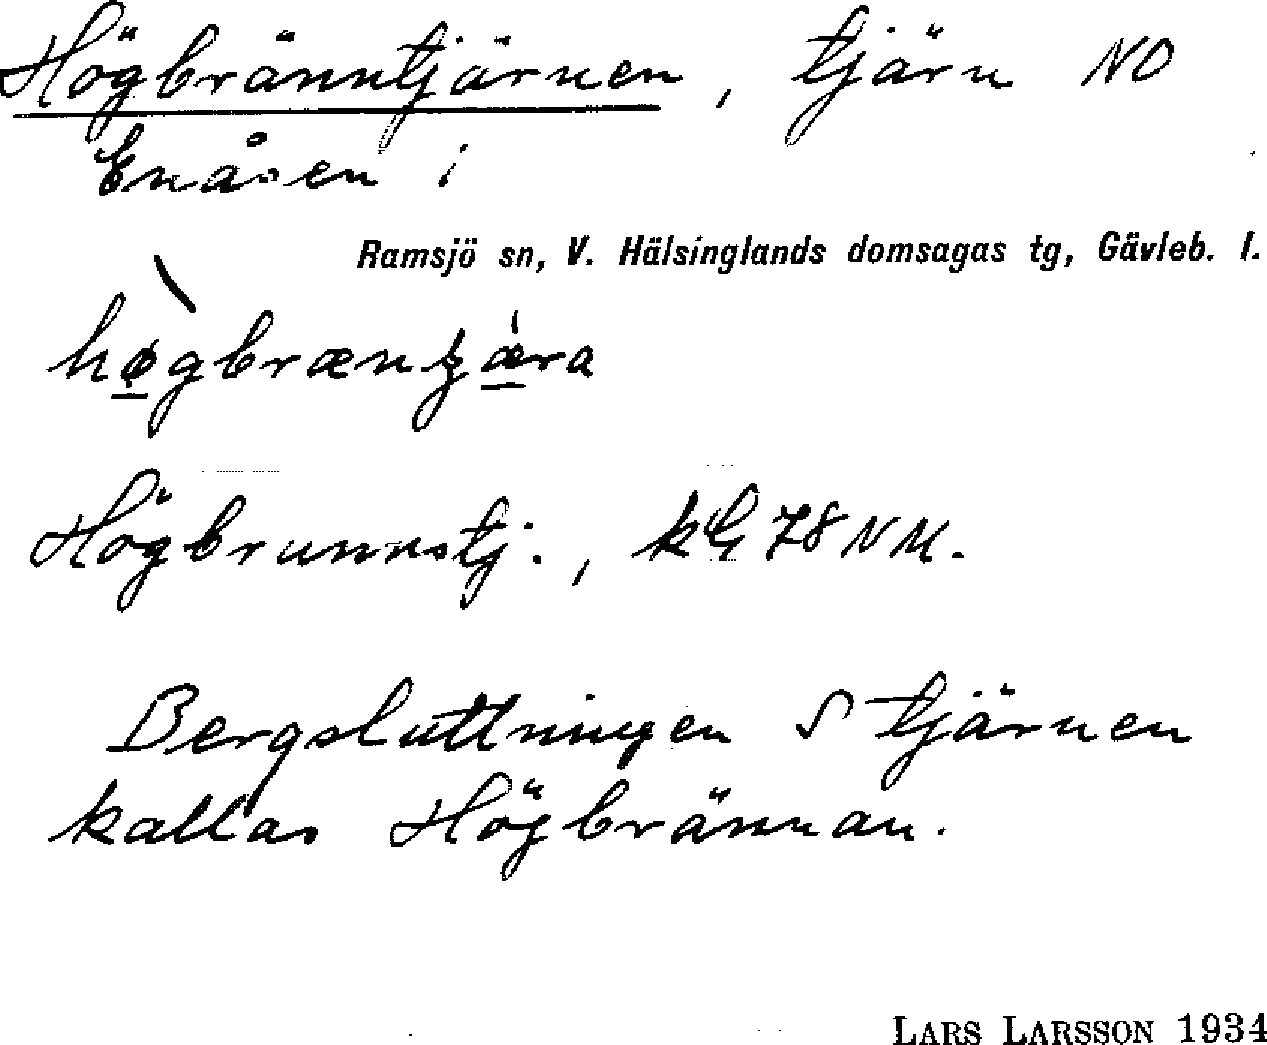 Högbränntjärnen, tjärn NO
Enåsen i
Ramsjö sn, V. Hälsinglands domsagas tg, Gävleb. l.
Högbrunnstj., 78 NM.
Bergsluttningen S tjärnen
kallas Högbrännan.
LARS LARSSON 1934